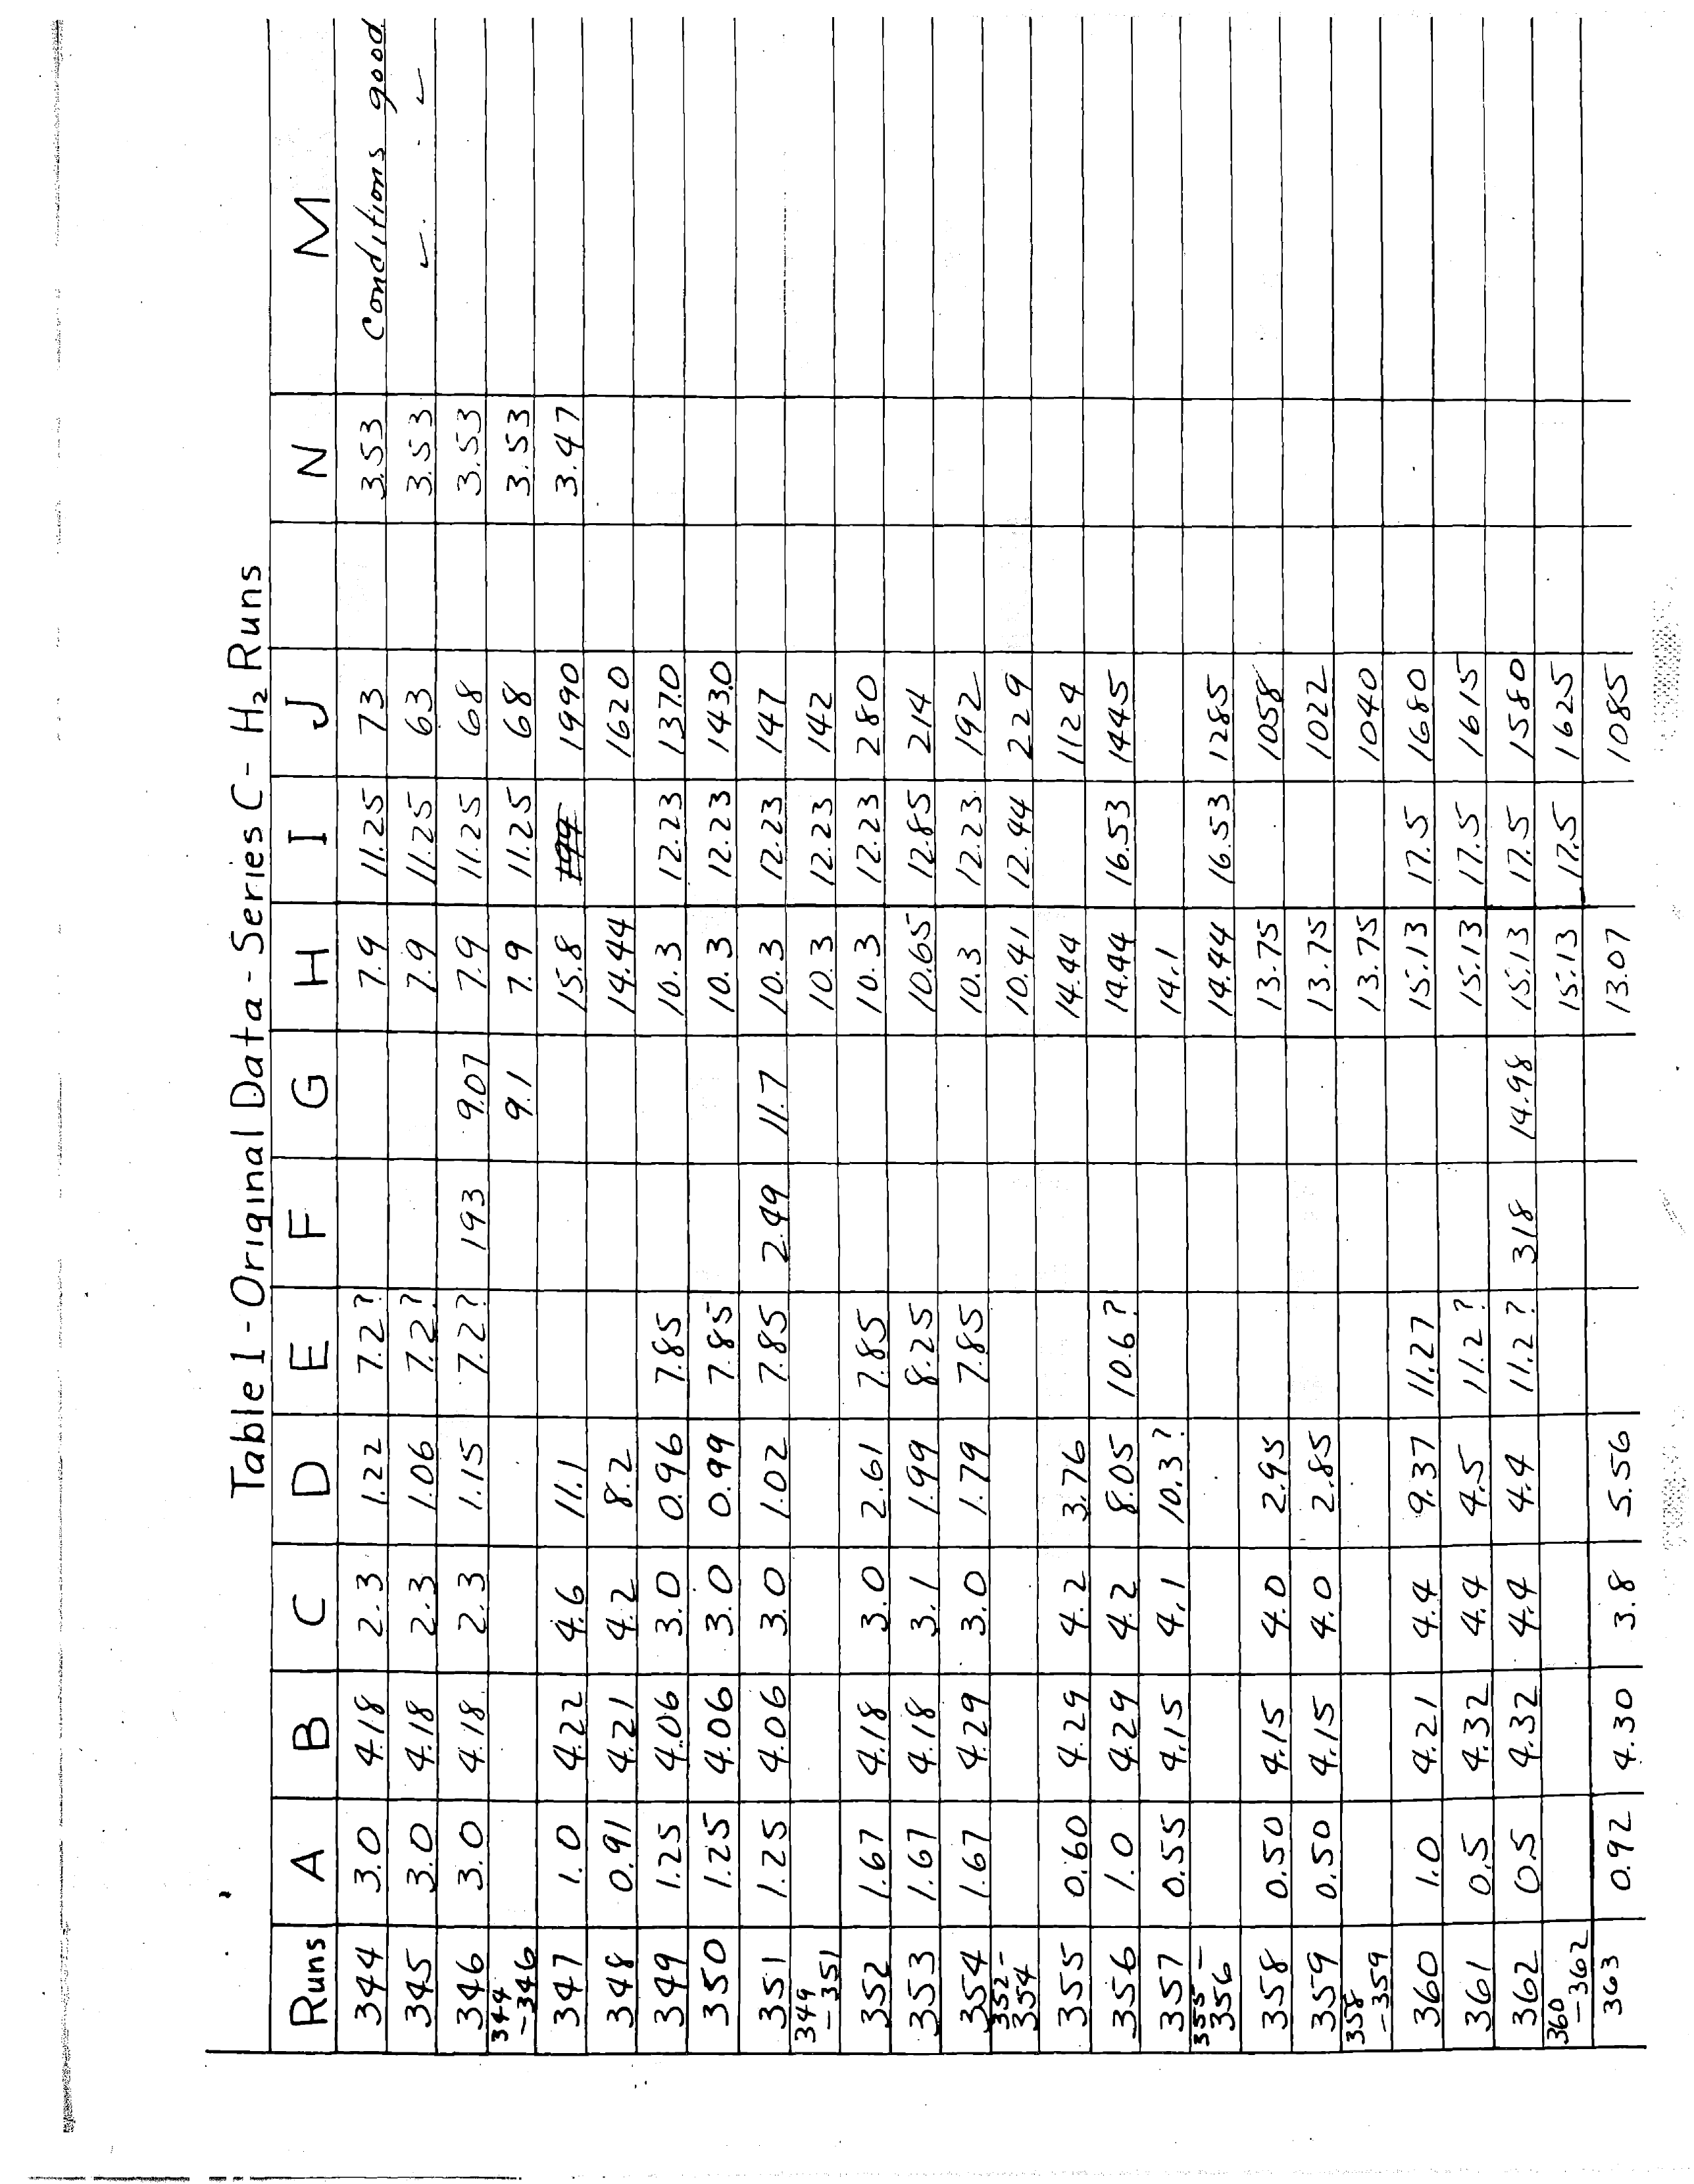 Table 1 - Original Data - Series C - H₂ Runs
Runs A B C D E F G H I J N M
344 3.0 4.18 2.3 1.22 7.2? 7.9 11.25 73 3.53 Conditions good
345 3.0 4.18 2.3 1.06 7.2? 7.9 11.25 63 3.53
346 3.0 4.18 2.3 1.15 7.2? 193 9.07 7.9 11.25 68 3.53
344-346 9.1 7.9 11.25 68 3.53
347 1.0 4.22 4.6 11.1 15.8 1990 3.47
348 0.91 4.21 4.2 8.2 14.44 1620
349 1.25 4.06 3.0 0.96 7.85 10.3 12.23 137.0
350 1.25 4.06 3.0 0.99 7.85 10.3 12.23 143.0
351 1.25 4.06 3.0 1.02 7.85 2.49 11.7 10.3 12.23 147
349-351 10.3 12.23 142
352 1.67 4.18 3.0 2.61 7.85 10.3 12.23 280
353 1.67 4.18 3.1 1.99 8.25 10.65 12.85 214
354 1.67 4.29 3.0 1.79 7.85 10.3 12.23 192
352-354 10.41 12.44 229
355 0.60 4.29 4.2 3.76 14.44 1124
356 1.0 4.29 4.2 8.05 10.6? 14.44 16.53 1445
357 0.55 4.15 4.1 10.3? 14.1
355-356 14.44 16.53 1285
358 0.50 4.15 4.0 2.95 13.75 1058
359 0.50 4.15 4.0 2.85 13.75 1022
358-359 13.75 1040
360 1.0 4.21 4.4 9.37 11.27 15.13 17.5 1680
361 0.5 4.32 4.4 4.5 11.2? 15.13 17.5 1615
362 0.5 4.32 4.4 4.4 11.2? 318 14.98 15.13 17.5 1580
360-362 15.13 17.5 1625
363 0.92 4.30 3.8 5.56 13.07 1085